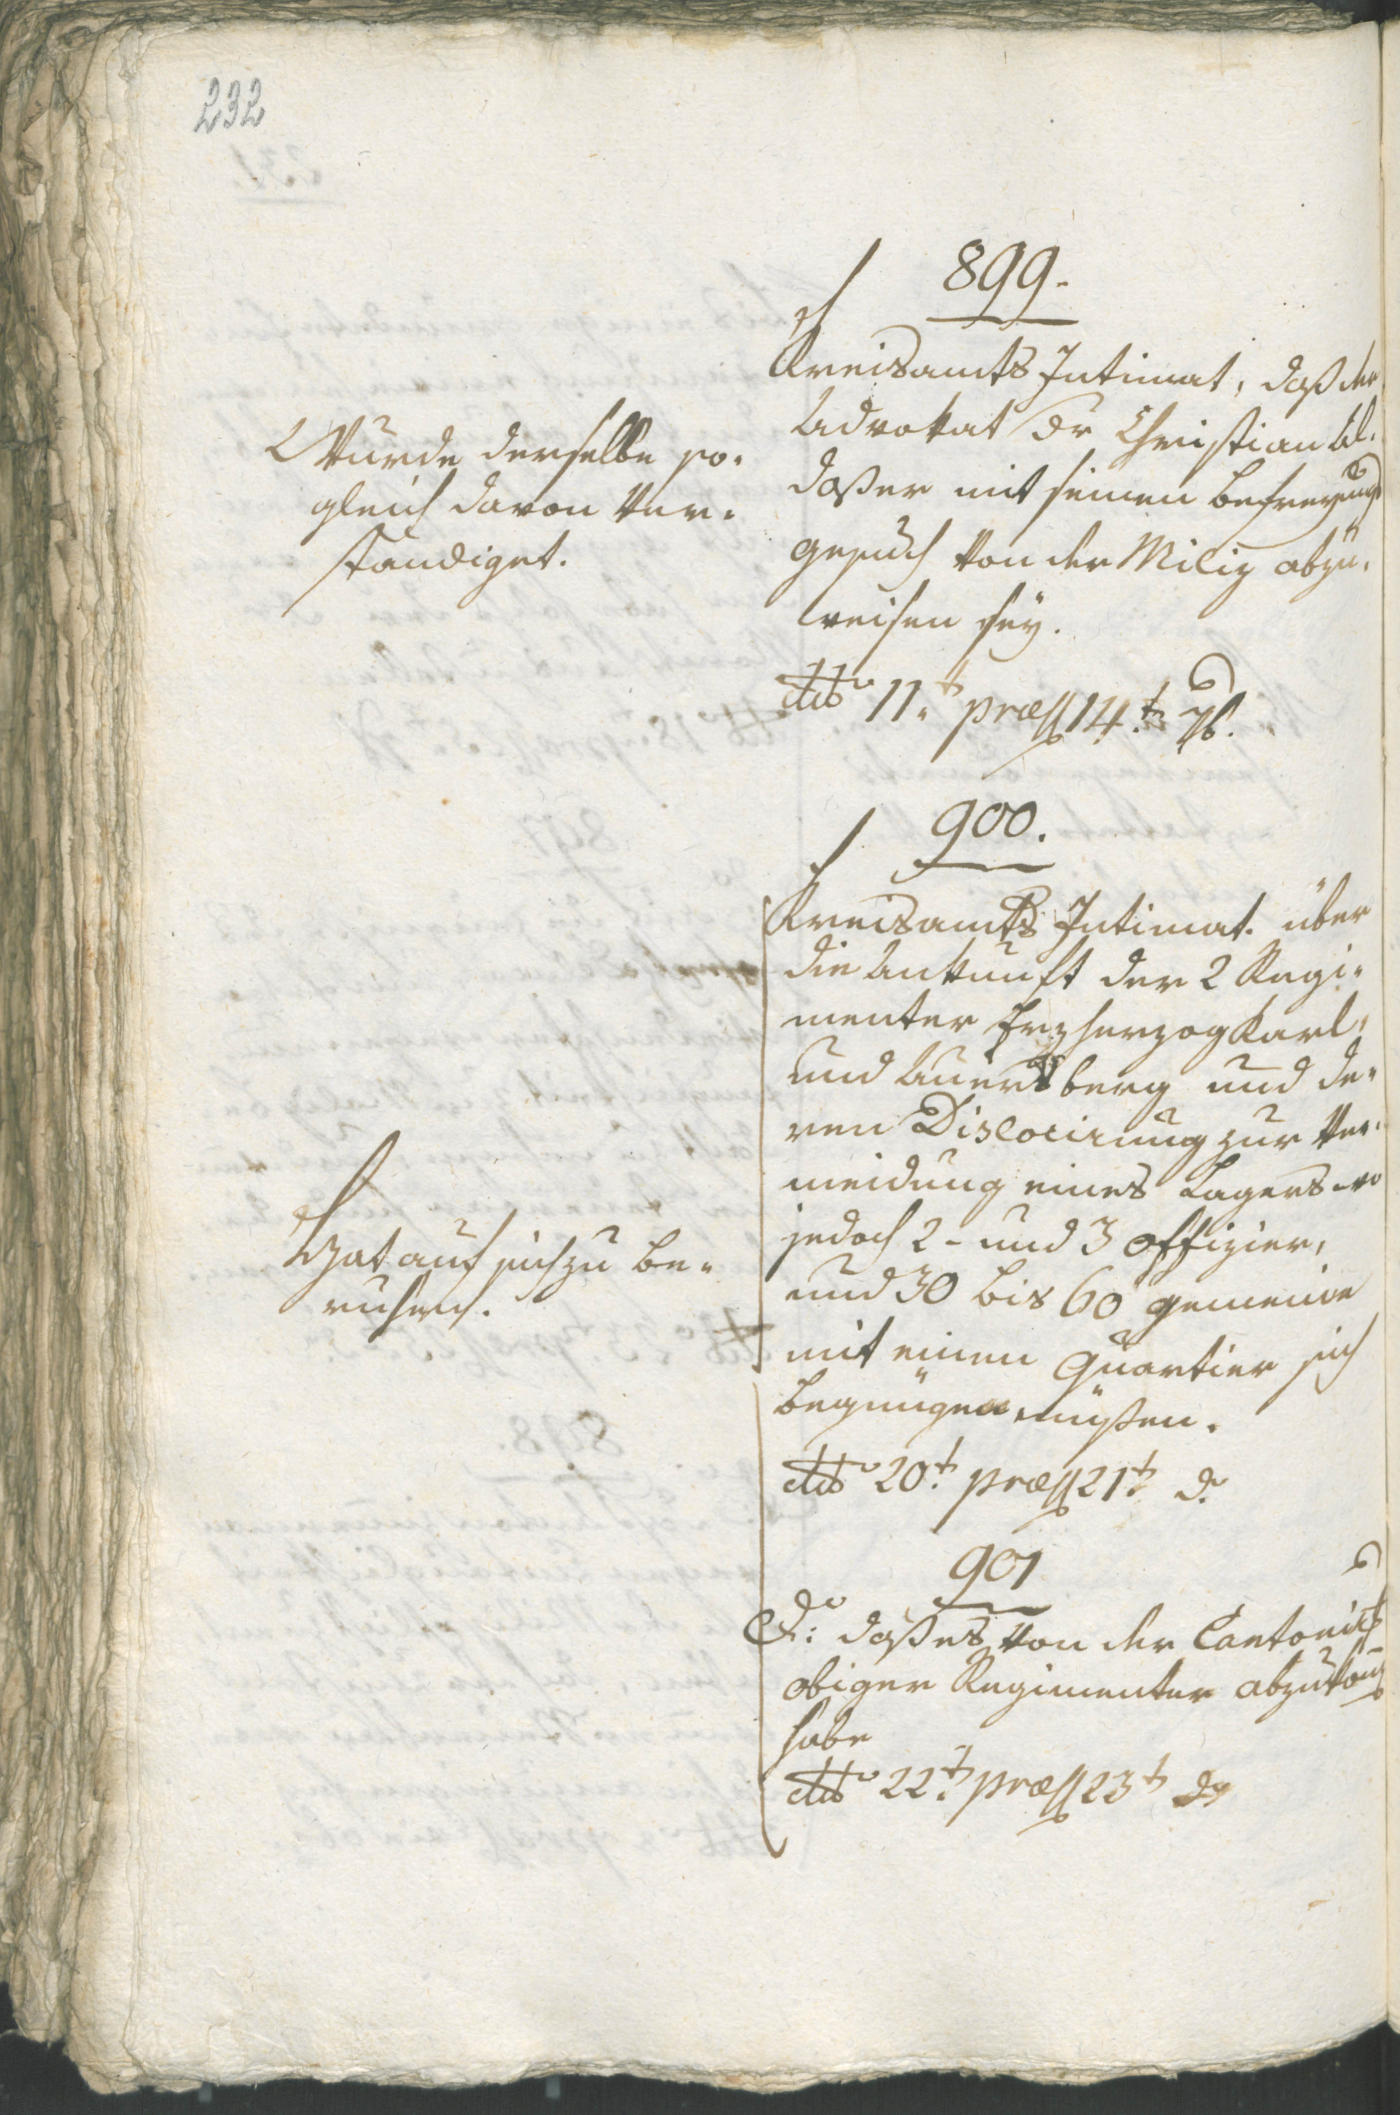 232
899.
Kreisamts Intimat, daß der
Advokat Dr Christian
daß er mit seinem Befreyungs
gesuch von der Miliz abzu-
weisen sey.
ddto 11.t præss 14.t 7b.
Wurde derselbe so-
gleich davon ver-
ständiget.
900.
Kreisamts Intimat. über
die Ankunft der 2 Regi-
menter Erzherzog Karl,
und Auersberg und de-
ren Dislocirung zur Ver-
meidung eines Lagers wo
jedoch 2- und 3 Offizier,
und 30 bis 60 gemeine
mit einem Quartier sich
begnügen müßen.
ddto 20.t præss 21.t do
Hat auf sich zu be-
ruhen.
901
do: daß es von der
obiger Regimenter
habe
ddto 22.t præss 23t do